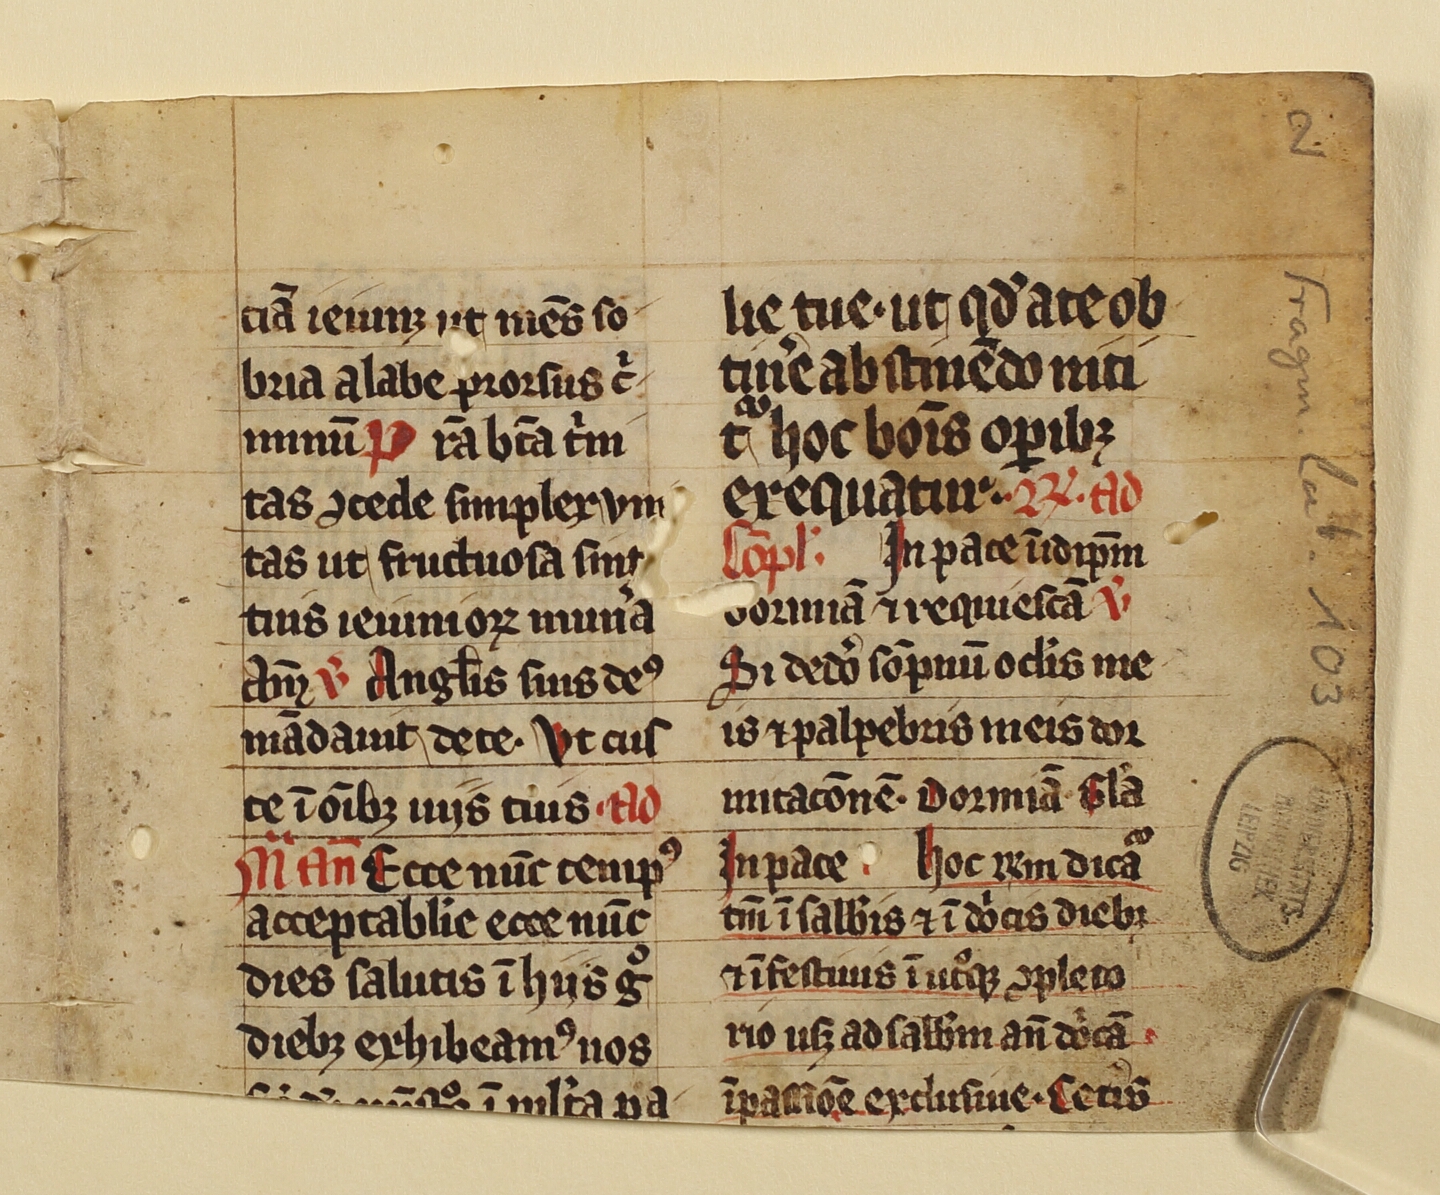 ciā ieiunꝫ ut mēs so
bria a labe prorsus c̄
minū P rā bt̄a t̄ni
tas ꝯcede simplex vni
tas ut fructuosa sint
tuis ieiunioꝝ mun̄a
Am̄ ℣ Angel̄is suis deꝰ
mādauit de te. Vt cus
te ī oīb; uijs tuis. Ad
M̄ An̄ Ecce nūc tempꝰ
acceptabile ecce nūc
dies salutis ī hijs gͦ
dieb; exhibeamꝰ nos
ī ml̄ta pa
lie tue. ut qd̓ a te ob
tin̄e abstinēdo niti
t hoc boīs oꝑib;
exequatur. ℟. Ad
Cōpl̄. In pace īidip̄m
dormiā ⁊ requiescā ℣
Si ded̓o sōpnū oclīs me
is ⁊ palpebris meis dor
mitacōnē. Dormiā Gl̄a
In pace Hoc ℟m dica
tm̄ ī salb̄is ⁊ ī dōcis dieb;
⁊ ī festiuis ī utͦqꝫ ꝯpleto
rio usꝫ ad salb̄m an̄ dōcā
ī passiōe exclusiue. Cet̓is
2
Fragm. lat. 103
UNIVERSITÄTS-
BIBLIOTHEK
LEIPZIG